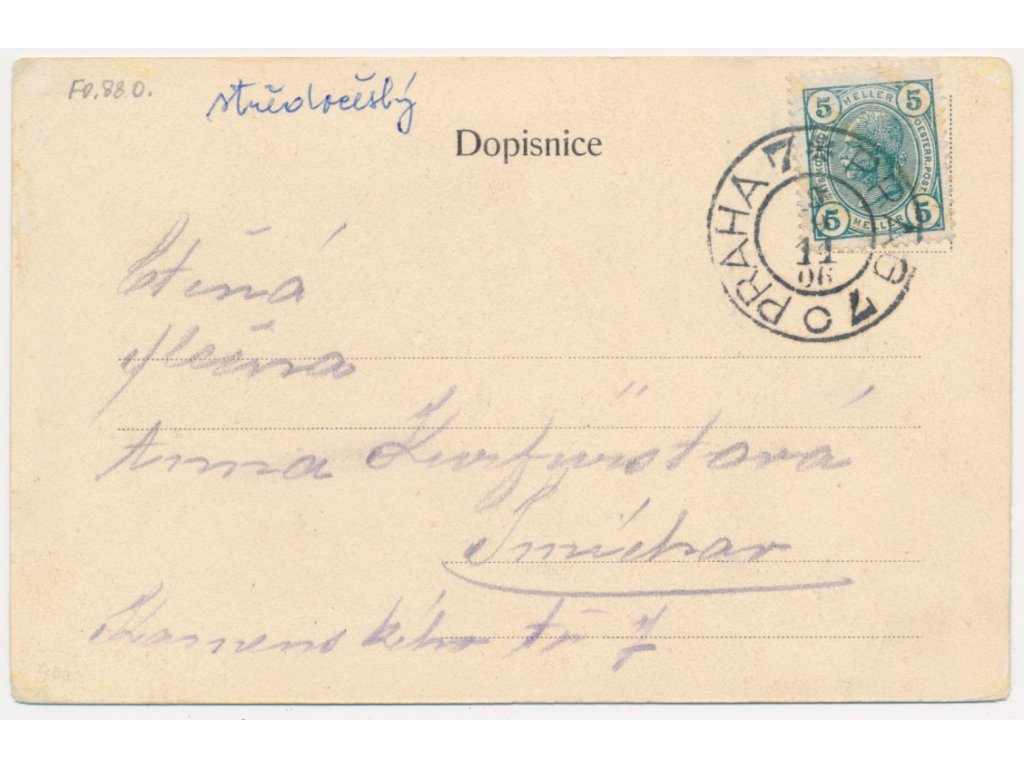 FO.88.0.
středočeský
Dopisnice
5 HELLER 5
OESTERR. POST.
5 HELLER 5
PRAHA 7 * PRAG 7
11
06
Ctěná
slečna
Anna Kurfürstová
Smíchov
Kamenského tř 7